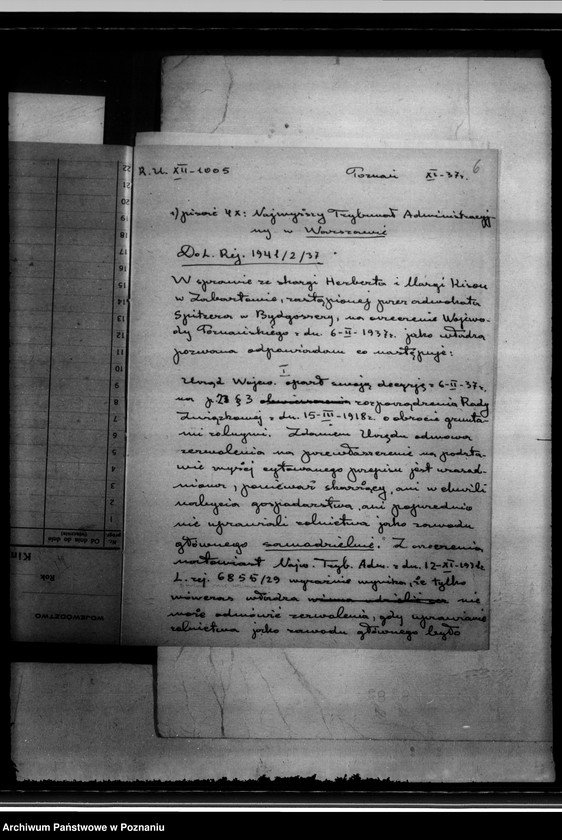 6
R.U. XII-1005 Poznań XI-37r.
1) pisać 4x: Najwyższy Trybunał Administracyj-
ny w Warszawie
Do L. Rej. 1941/2/37
W sprawie ze skargi Herberta i Margi
w zastąpionej przez adwokata
Spitzera w Bydgoszczy, na orzeczenie Wojewo-
dy Poznańskiego z dn. 6-II-1937r. jako władza
pozwana odpowiadam co następuje:
I
Urząd Wojew. oparł swoją decyzję z 6-II-37r.
na § 3 rozporządzenia Rady
Związkowej z dn. 15-III-1918r. o obrocie grunta-
mi rolnymi. Zdaniem Urzędu odmowa
zezwolenia na przewłaszczenie na podsta-
wie wyżej cytowanego przepisu jest uzasad-
niona, ponieważ skarżący, ani w chwili
nabycia gospodarstwa, ani poprzednio
nie uprawiali rolnictwa jako zawodu
głównego samodzielnie. Z orzeczenia
natomiast Najw. Tryb. Adm. z dn. 12-XI-193
L. rej. 6855/29 wyraźnie wynika, że tylko
wówczas władza nie
może odmówić zezwolenia, gdy uprawianie
rolnictwa jako zawodu głównego było
22
21
20
19
18
17
16
15
14
13
12
11
10
9
8
7
6
5
4
3
2
1
Od dnia do dnia
Rok
Kin
WOJEWÓDZTWO
Archiwum Państwowe w Poznaniu